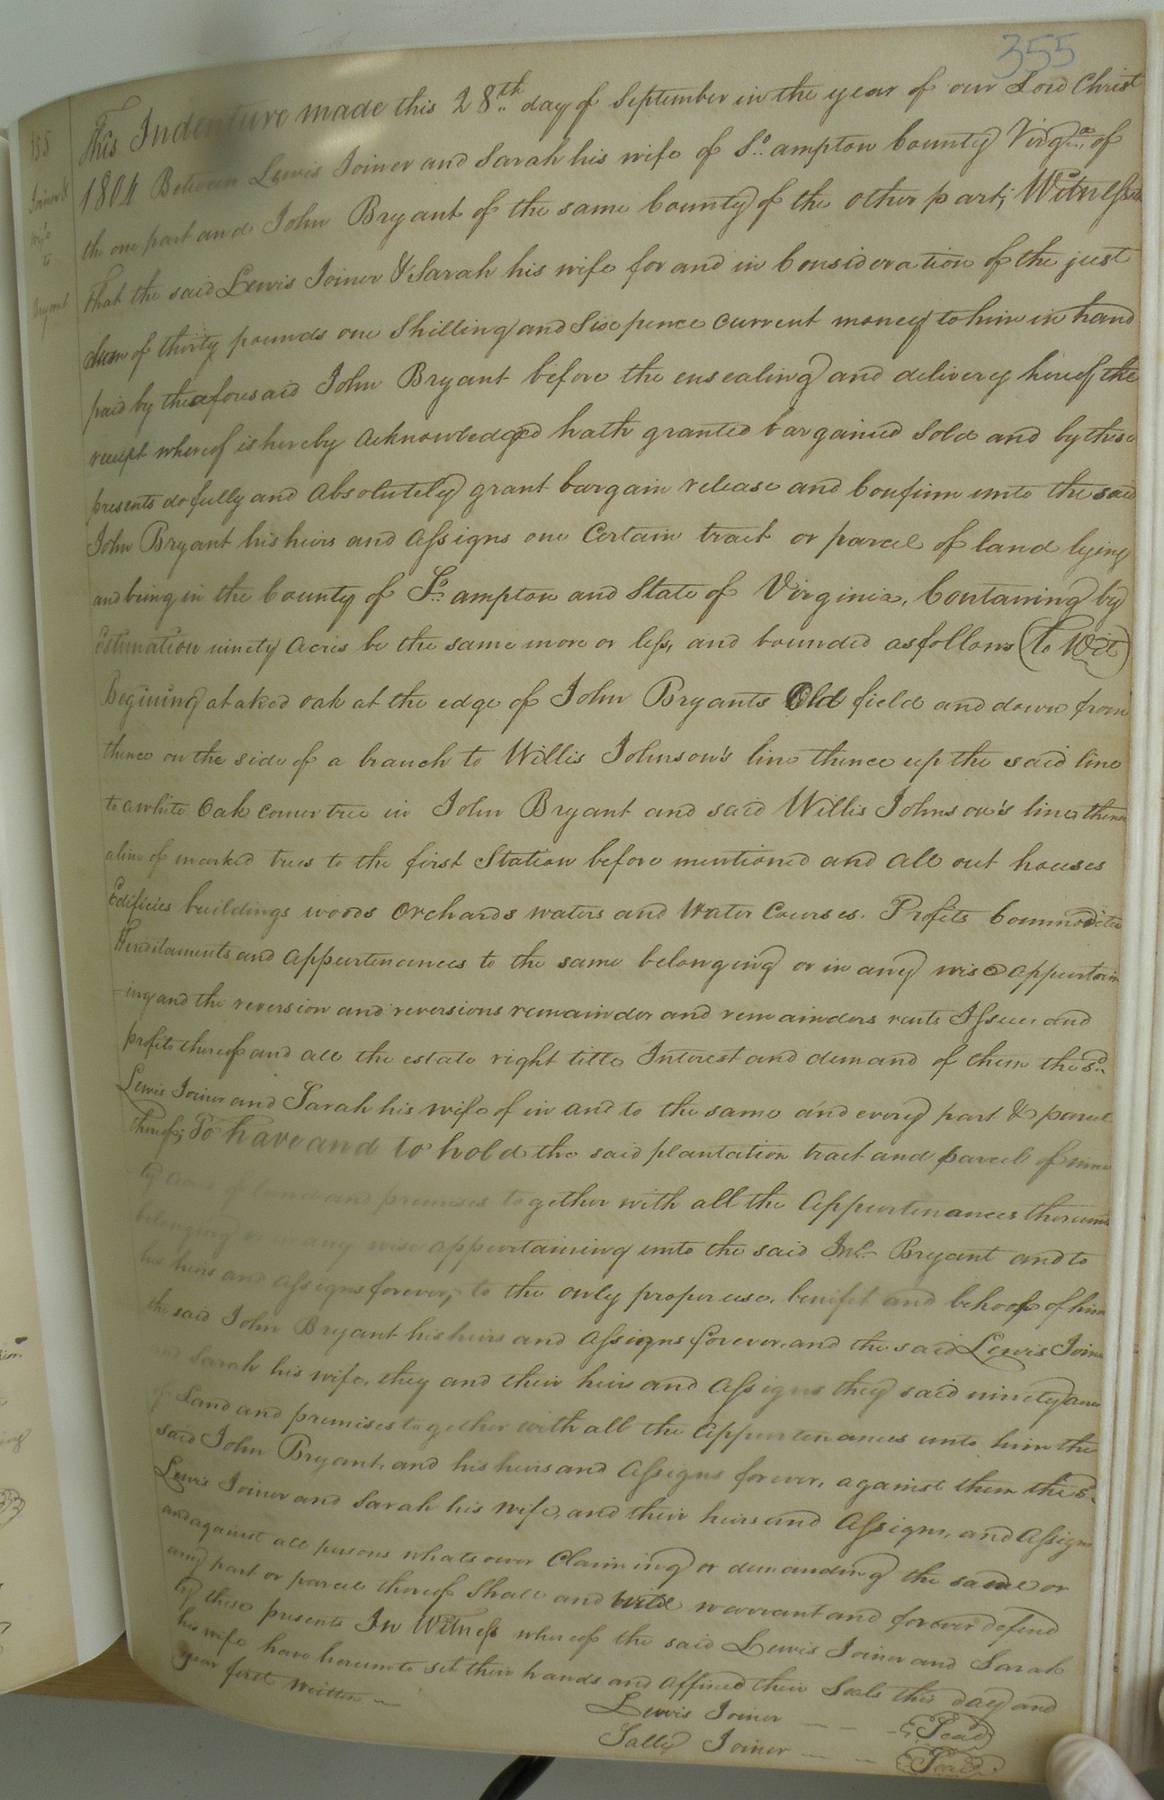 355
155
Joiner &
wife
to
Bryant
This Indenture made this 28th day of September in the year of our Lord Christ
1804 Between Lewis Joiner and Sarah his wife of So. ampton County Virga. of
the one part and John Bryant of the same County of the other part; Witnesseth
that the said Lewis Joiner & Sarah his wife for and in Consideration of the just
Sum of thirty pounds one Shilling and Six pence Current money to him in hand
paid by the aforesaid John Bryant before the ensealing and delivery hereof the
receipt whereof is hereby acknowledged hath granted bargained Sold and by these
presents do fully and absolutely grant bargain release and Confirm unto the said
John Bryant his heirs and assigns one Certain tract or parcel of land lying
and being in the County of So. ampton and State of Virginia, Containing by
estimation ninety acres be the same more or less, and bounded as follows (to Wit)
Begining at a Red oak at the edge of John Bryants Old field and down from
thence on the side of a branch to Willis Johnson's line thence up the said line
to a white Oak corner tree in John Bryant and said Willis Johnson's line thence
a line of marked trees to the first Station before mentioned and all out houses
Edificies buildings woods Orchards waters and Water Courses. Profits Commodities
Hereditaments and appurtenances to the same belonging or in any wise appertain
-ing and the reversion and reversions remainder and remainders rents Issues and
profits thereof and all the estate right title Interest and demand of them the sd.
Lewis Joiner and Sarah his wife of in and to the same and every part & parcel
thereof; To have and to hold the said plantation tract and parcel of nine
ty acres of land and premises together with all the appurtenances thereunto
belonging or in any wise appurtaining unto the said Jno. Bryant and to
his heirs and assigns forever, to the only proper use, benifit and behoof of him
the said John Bryant his heirs and assigns forever, and the said Lewis Joiner
and Sarah his wife, they and their heirs and assigns they said ninety acres
of Land and premises together with all the appurtenances unto him the
said John Bryant, and his heirs and assigns forever, against them the sd.
Lewis Joiner and Sarah his wife, and their heirs and assigns, and assigns
and against all persons whatsoever Claiming or demanding the same or
any part or parcel thereof Shall and will warrant and forever defend
by these presents In Witness whereof the said Lewis Joiner and Sarah
his wife have hereunto set their hands and affixed their Seals this day and
year first written
Lewis Joiner Seal
Sally Joiner Seal